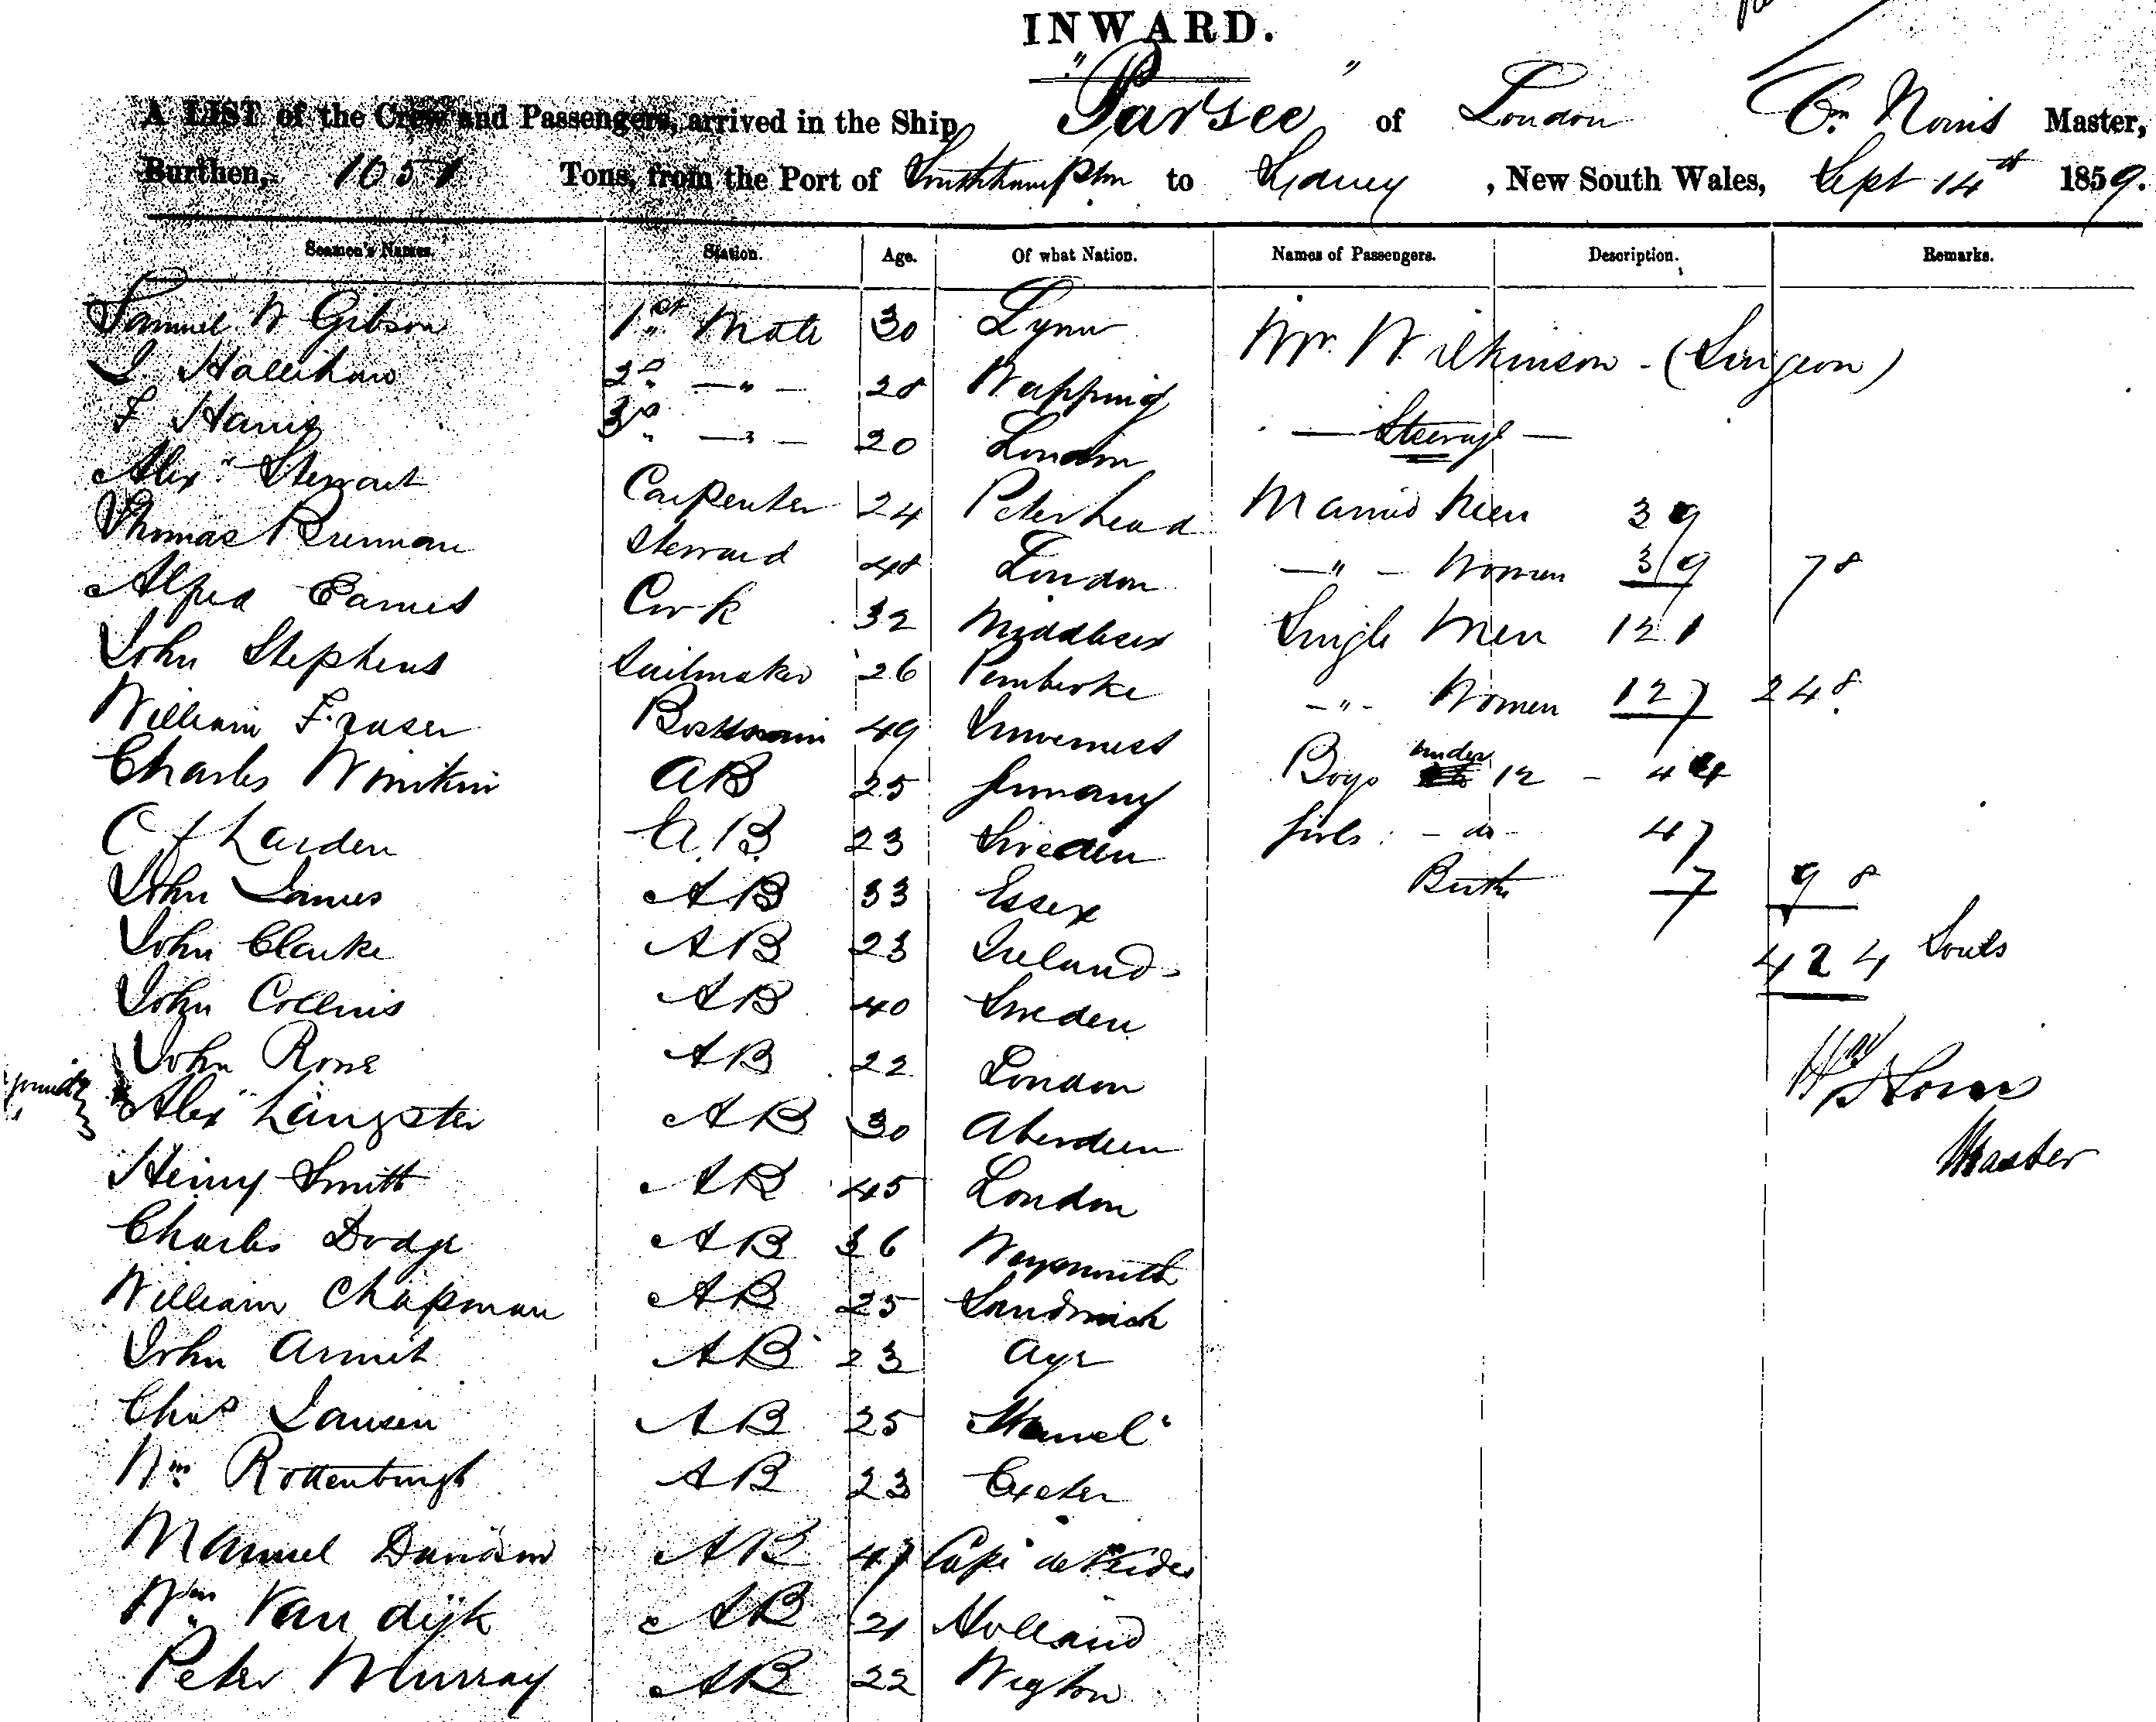 INWARD.
A LIST of the Crew and Passengers, arrived in the Ship "Parsee" of London Wm Norris Master,
Burthen, 1051 Tons, from the Port of Southampton to Sydney, New South Wales, Sept 14th 1859.
Seamen's Names. Station. Age. Of what Nation. Names of Passengers. Description. Remarks.
Samuel W Gibson 1st Mate 30 Lynn Mr. Wilkinson - (Surgeon)
J. Hallihaw 2d — " — 28 Wapping
F Harris 3d — " — 20 London — Steerage —
Alexr Stewart Carpenter 24 Peterhead Married Men 39
Thomas Brennan Steward 48 London — " — Women 39 78
Alfred Eames Cook 32 Middlesex Single Men 121
John Stephens Sailmaker 26 Pembroke - " - Women 127 248
William Fraser Boatswain 49 Inverness Boys under 12 - 44
Charles AB 25 Germany Girls: - do - 47
C f Larden A.B. 23 Sweden Births 7 98
John James AB 33 Essex 424 Souls
John Clarke AB 23 Ireland
John Collins AB 40 Sweden
John Rose AB 22 London Wm Norris
Alexr Langster AB 30 Aberdeen Master
Henry Smith AB 45 London
Charles Dodge AB 36 Weymouth
William Chapman AB 25 Sandwich
John Armit AB 23 Ayr
Chas Jansen AB 25
Wm Rottenburgh AB 23 Exeter
Manuel AB 47 Cape de Verdes
Wm Van dijk AB 21 Holland
Peter Murray AB 22 Wigton